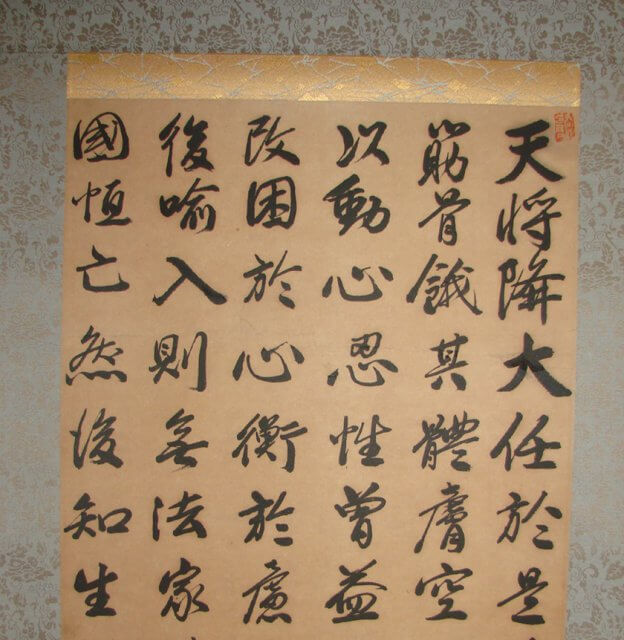 天将降大任於是
筋骨餓其體膚空
以動心忍性曾益
改困於心衡於慮
後喻入則無法家
國恆亡然後知生